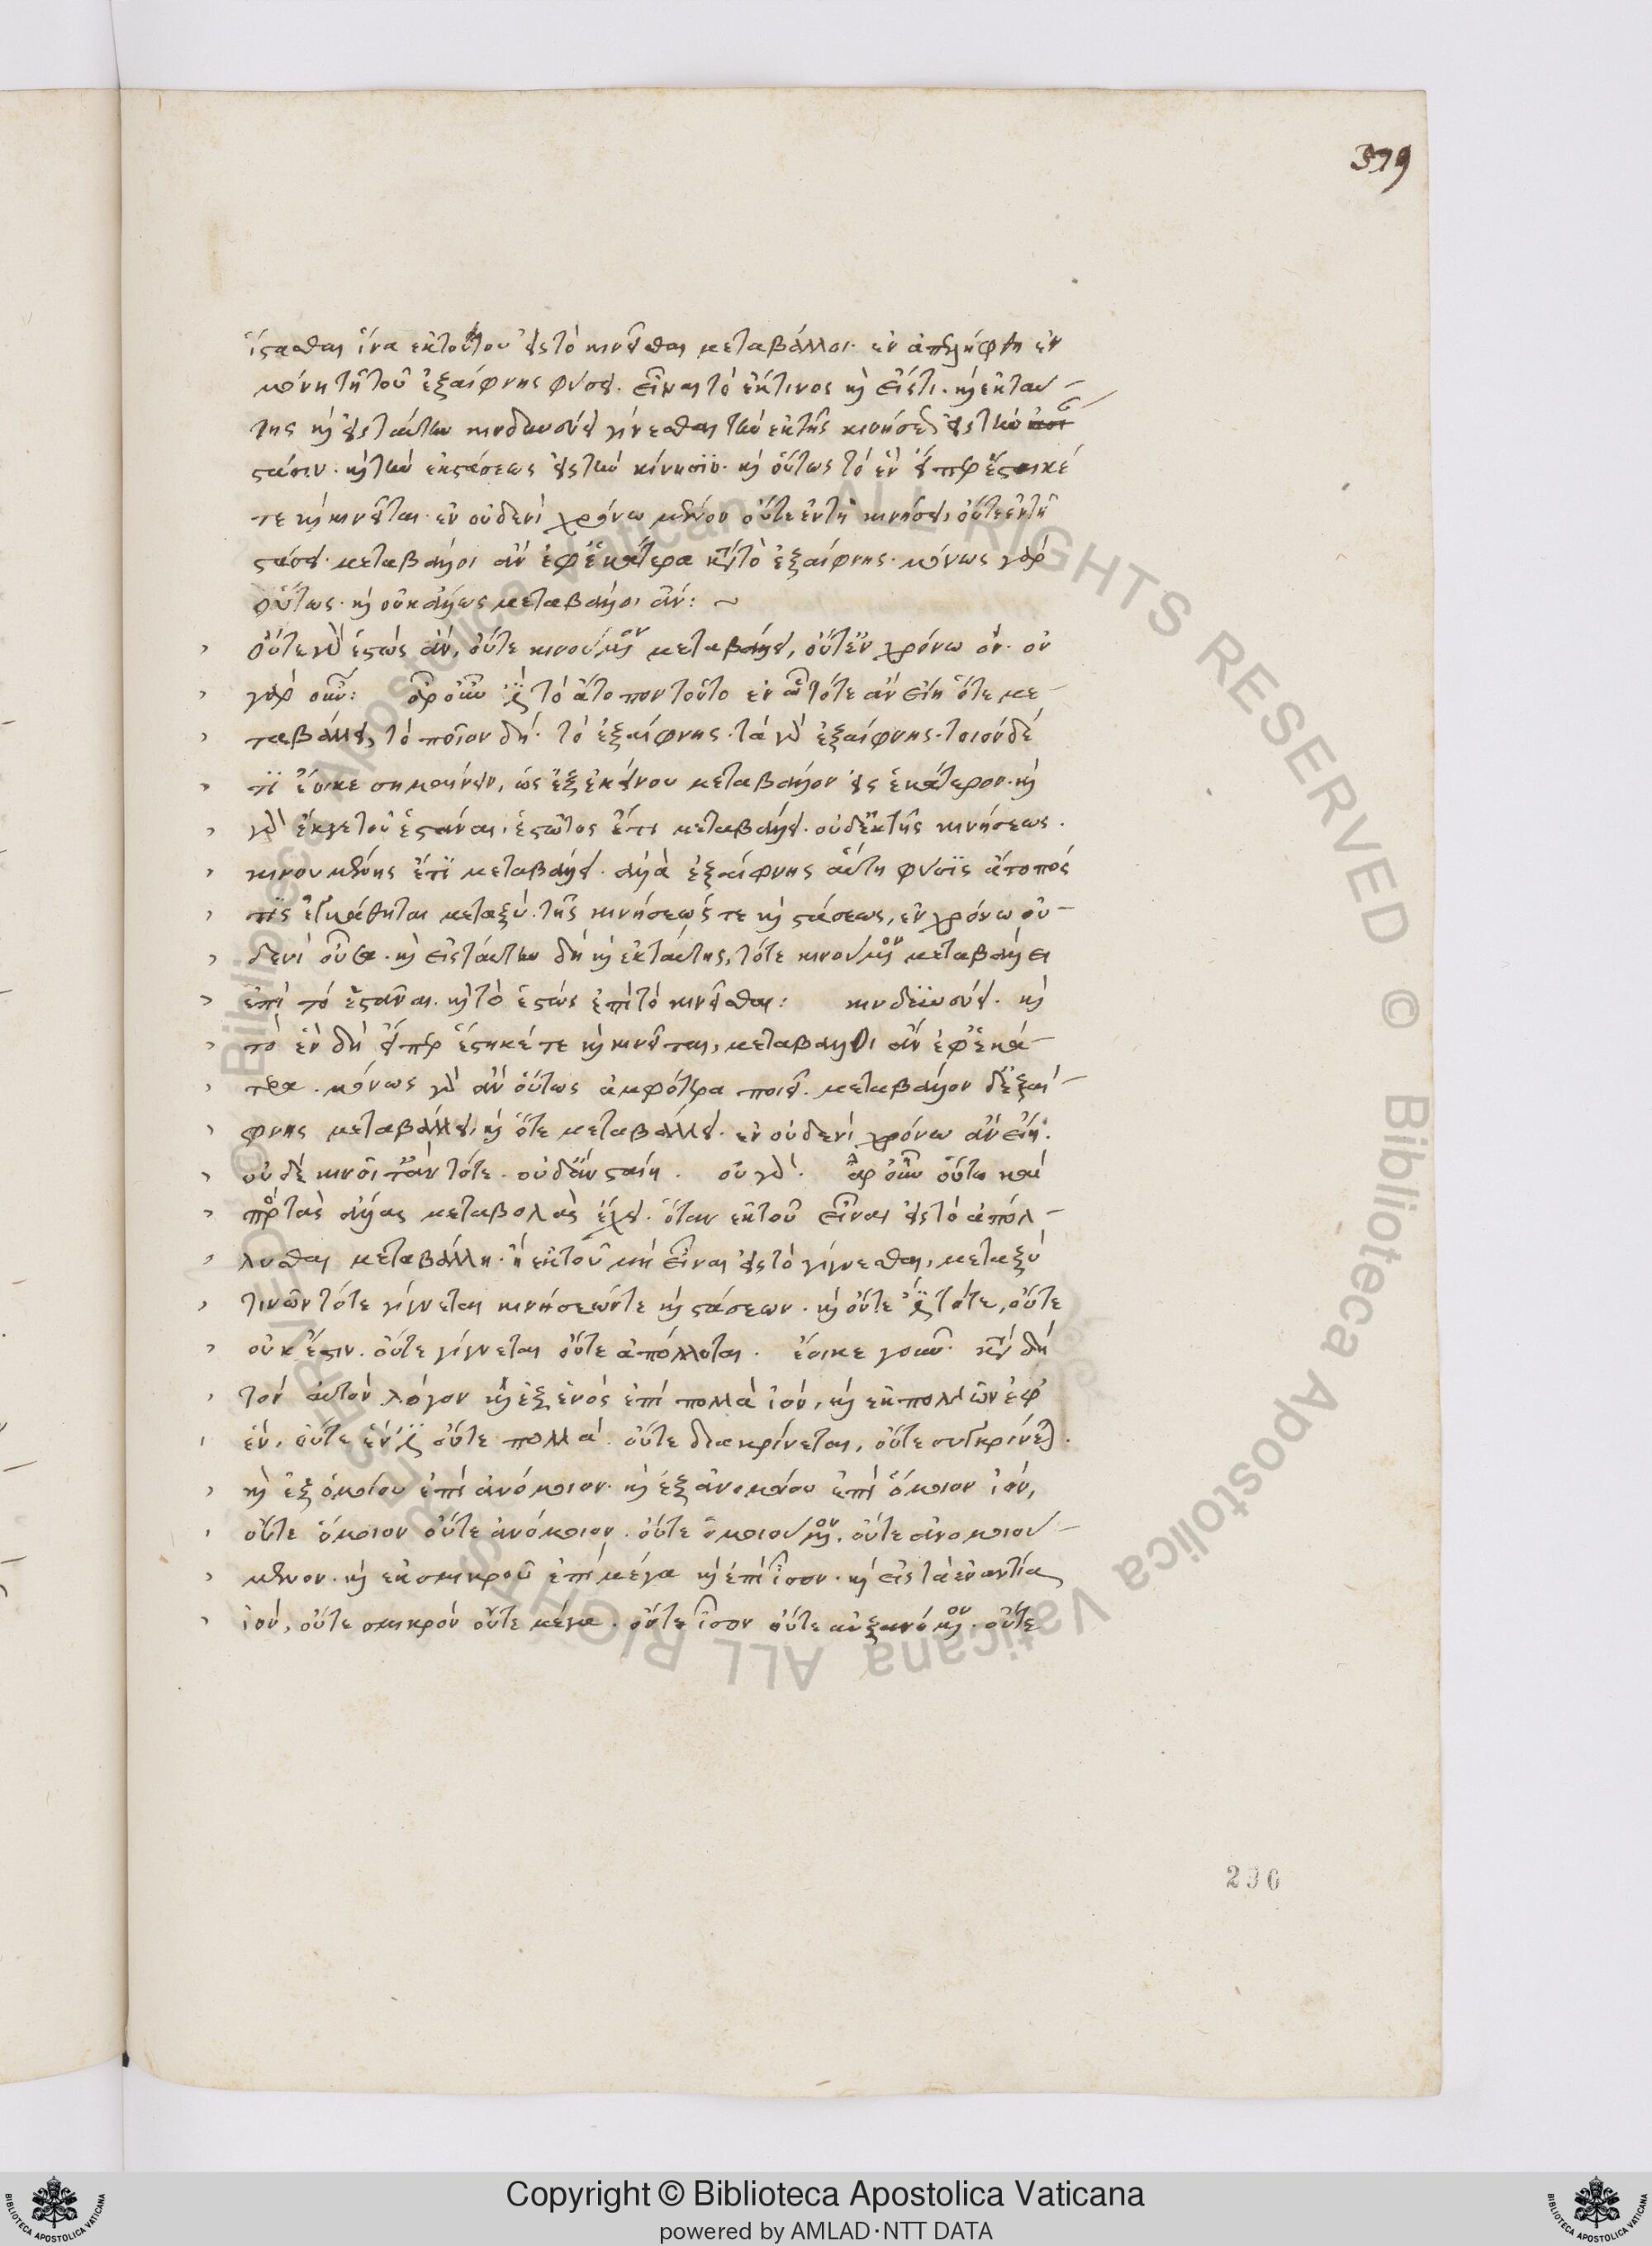 379
ἵστασθαι ἵνα ἐκ τούτου εἰς τὸ κινεῖσθαι μεταβάλλοι. ἓν ἀπελήφθη ἐν
μόνη τῆ τοῦ ἐξαίφνης φύσει. εἶναι τὸ ἔκ τινος καὶ εἴς τι. καὶ ἐκ ταύ-
της καὶ εἰς ταύτην κινδυνεύει γίνεσθαι τὴν ἐκ τῆς κινήσεως εἰς τὴν
στάσιν. καὶ τὴν ἐκ στάσεως εἰς τὴν κίνησιν. καὶ οὕτως τὸ ἓν εἴπερ ἕστηκέ
τε καὶ κινεῖται. ἐν οὐδενὶ χρόνω μένον οὔτε ἐν τῆ κινήσει, οὔτε ἐν τῆ
στάσει. μεταβάλλοι ἂν ἐφ' ἑκάτερα κατὰ τὸ ἐξαίφνης. μόνως γὰρ
οὕτως. καὶ οὐκ ἄλλως μεταβάλλοι ἄν: ~
οὔτε γὰρ ἑστὼς ἂν, οὔτε κινούμενον μεταβάλλει, οὔτ' ἐν χρόνω ὄν. οὐ
γὰρ οὖν: ἆρ' οὖν ἔστι τὸ ἄτοπον τοῦτο ἐν ᾧ τότε ἂν εἴη ὅτε με-
ταβάλλει, τὸ ποῖον δή. τὸ ἐξαίφνης. τὰ γὰρ ἐξαίφνης. τοιόνδέ
τι ἔοικε σημαίνειν, ὡς ἐξ ἐκείνου μεταβάλλον εἰς ἑκάτερον. καὶ
γὰρ ἔκ γε τοῦ ἑστάναι. ἑστῶτος ἔτι μεταβάλλει. οὐδ' ἐκ τῆς κινήσεως.
κινουμένης ἔτι μεταβάλλει. ἀλλὰ ἐξαίφνης αὕτη φύσις ἄτοπός
τις ἐγκάθηται μεταξὺ. τῆς κινήσεώς τε καὶ στάσεως, ἐν χρόνω οὐ-
δενὶ οὖσα. καὶ εἰς ταύτην δὴ καὶ ἐκ ταύτης, τότε κινούμενον μεταβάλλει
ἐπὶ τὸ ἑστάναι. καὶ τὸ ἑστὼς ἐπὶ τὸ κινεῖσθαι: κινδυνεύει. καὶ
τὸ ἓν δὴ εἴπερ ἕστηκέ τε καὶ κινεῖται, μεταβάλλοι ἂν ἐφ' ἑκά-
τερα. μόνως γὰρ ἂν οὕτως ἀμφότερα ποιεῖ. μεταβάλλον δ' ἐξαί-
φνης μεταβάλλει, καὶ ὅτε μεταβάλλει. ἐν οὐδενὶ χρόνω ἂν εἴη.
οὐδὲ κινοῖτ' ἂν τότε. οὐδ' ἂν σταίη. οὐ γάρ. ἆρ' οὖν οὕτω καὶ
πρὸς τὰς ἄλλας μεταβολὰς ἔχει. ὅταν ἐκ τοῦ εἶναι εἰς τὸ ἀπόλ-
λυσθαι μεταβάλλη. ἢ ἐκ τοῦ μὴ εἶναι εἰς τὸ γίγνεσθαι, μεταξύ
τινων τότε γίγνεται κινήσεών τε καὶ στάσεων. καὶ οὔτε ἔστι τότε, οὔτε
οὐκ ἔστιν. οὔτε γίγνεται οὔτε ἀπόλλυται. ἔοικε γοῦν. κατὰ δὴ
τὸν αὐτὸν λόγον καὶ ἐξ ἑνὸς ἐπὶ πολλὰ ἰὸν, καὶ ἐκ πολλῶν ἐφ'
ἕν, οὔτε ἕν ἐστι οὔτε πολλά. οὔτε διακρίνεται, οὔτε συγκρίνεται.
καὶ ἐξ ὁμοίου ἐπὶ ἀνόμοιον. καὶ ἐξ ἀνομοίου ἐπὶ ὅμοιον ἰόν,
οὔτε ὅμοιον οὔτε ἀνόμοιον. οὔτε ὁμοιούμενον. οὔτε ἀνομοιού-
μενον. καὶ ἐκ σμικροῦ ἐπὶ μέγα καὶ ἐπὶ ἴσον. καὶ εἰς τὰ ἐναντία
ἰόν, οὔτε σμικρὸν οὔτε μέγα. οὔτε ἴσον οὔτε αὐξανόμενον. οὔτε
290
© Biblioteca Apostolica Vaticana ALL RIGHTS RESERVED © Biblioteca Apostolica Vaticana ALL RIGHTS RESERVED
Copyright © Biblioteca Apostolica Vaticana
powered by AMLAD·NTT DATA